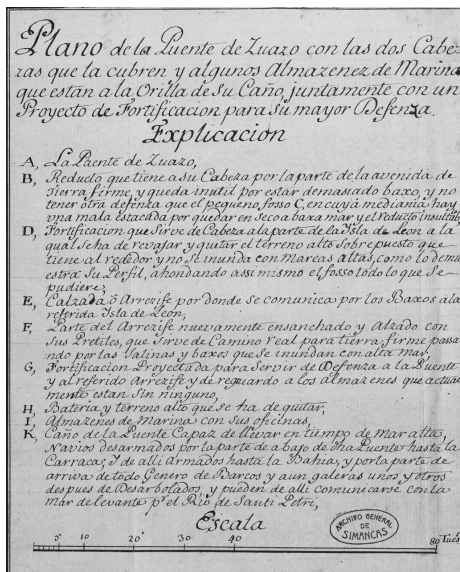 Plano de la Puente de Zuazo con las dos Cabe-
zas que la cubren y algunos Almazenez de Marina
que estàn a la Orilla de su Caño, juntamente con un
Proyecto de Fortificacion para su mayor Defenza.
Explicacion
A, La Puente de Zuazo,
B, Reducto que tiene a su Cabeza por la parte de la avenida de
Tierra firme, y queda inutil por estar demasiado baxo, y no
tener otra defenza que el pequeño fosso C, en cuya mediania hay
una mala estacada por quedar en seco a baxa mar y el reducto insultable
D, Fortificacion que Sirve de Cabeza a la parte de la Isla de Leon a la
qual se ha de revajar y quitar el terreno alto Sobrepuesto que
tiene al rededor y no se inunda con Mareas altas, como lo demu
estra su Perfil, ahondando assi mismo el fosso todo lo que Se
pudiere,
E, Calzada ò Arrezife por donde se comunica por los Baxos a la
referida Isla de Leon,
F, Parte del Arrezife nuevamente ensanchado y Alzado con
Sus Pretiles, que Sirve de Camino Real para tierra firme passa
ndo por las Salinas y baxos que Se inundan con alta mar,
G, Fortificacion Proyectada para Servir de Defenza a la Puente
y al referido Arrezife y de reguardo a los almazenes que actual
mente estan Sin ninguno,
H, Bateria y terreno alto que Se ha de quitar,
I, Almazenes de Marina con Sus oficinas,
K, Caño de la Puente Capaz de llevar en tiempo de Mar alta,
Navios desarmados por la parte de abajo de dha Puente hasta la
Carraca; Y de alli armados hasta la Bahia, y por la parte de
arriva de todo Genero de Barcos y aun galeras unos y otros
despues de Desarbolados, y pueden de alli comunicarse con la
mar de levante pr. el Rio de Santi Petri,
Escala
5 10 20 30 40 80 Tues.
ARCHIVO GENERAL
DE
SIMANCAS